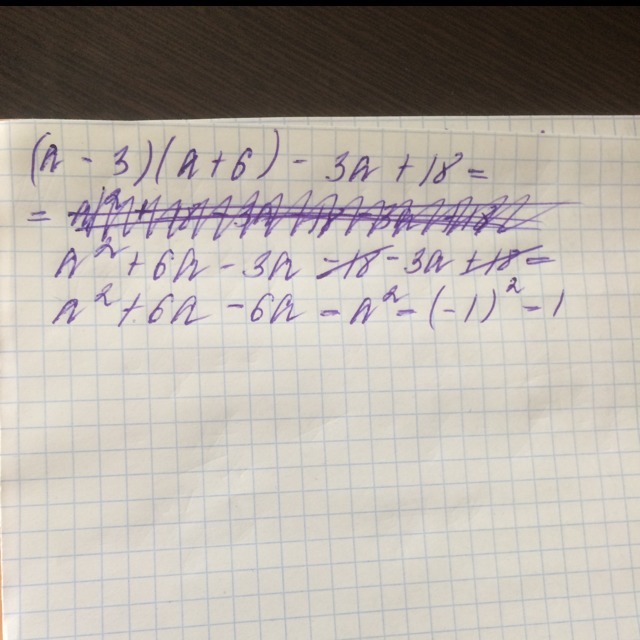 (a - 3)(a + 6) - 3a + 18 =
=
a² + 6a - 3a - 18 - 3a + 18 =
a² + 6a - 6a = a² = (-1)² = 1